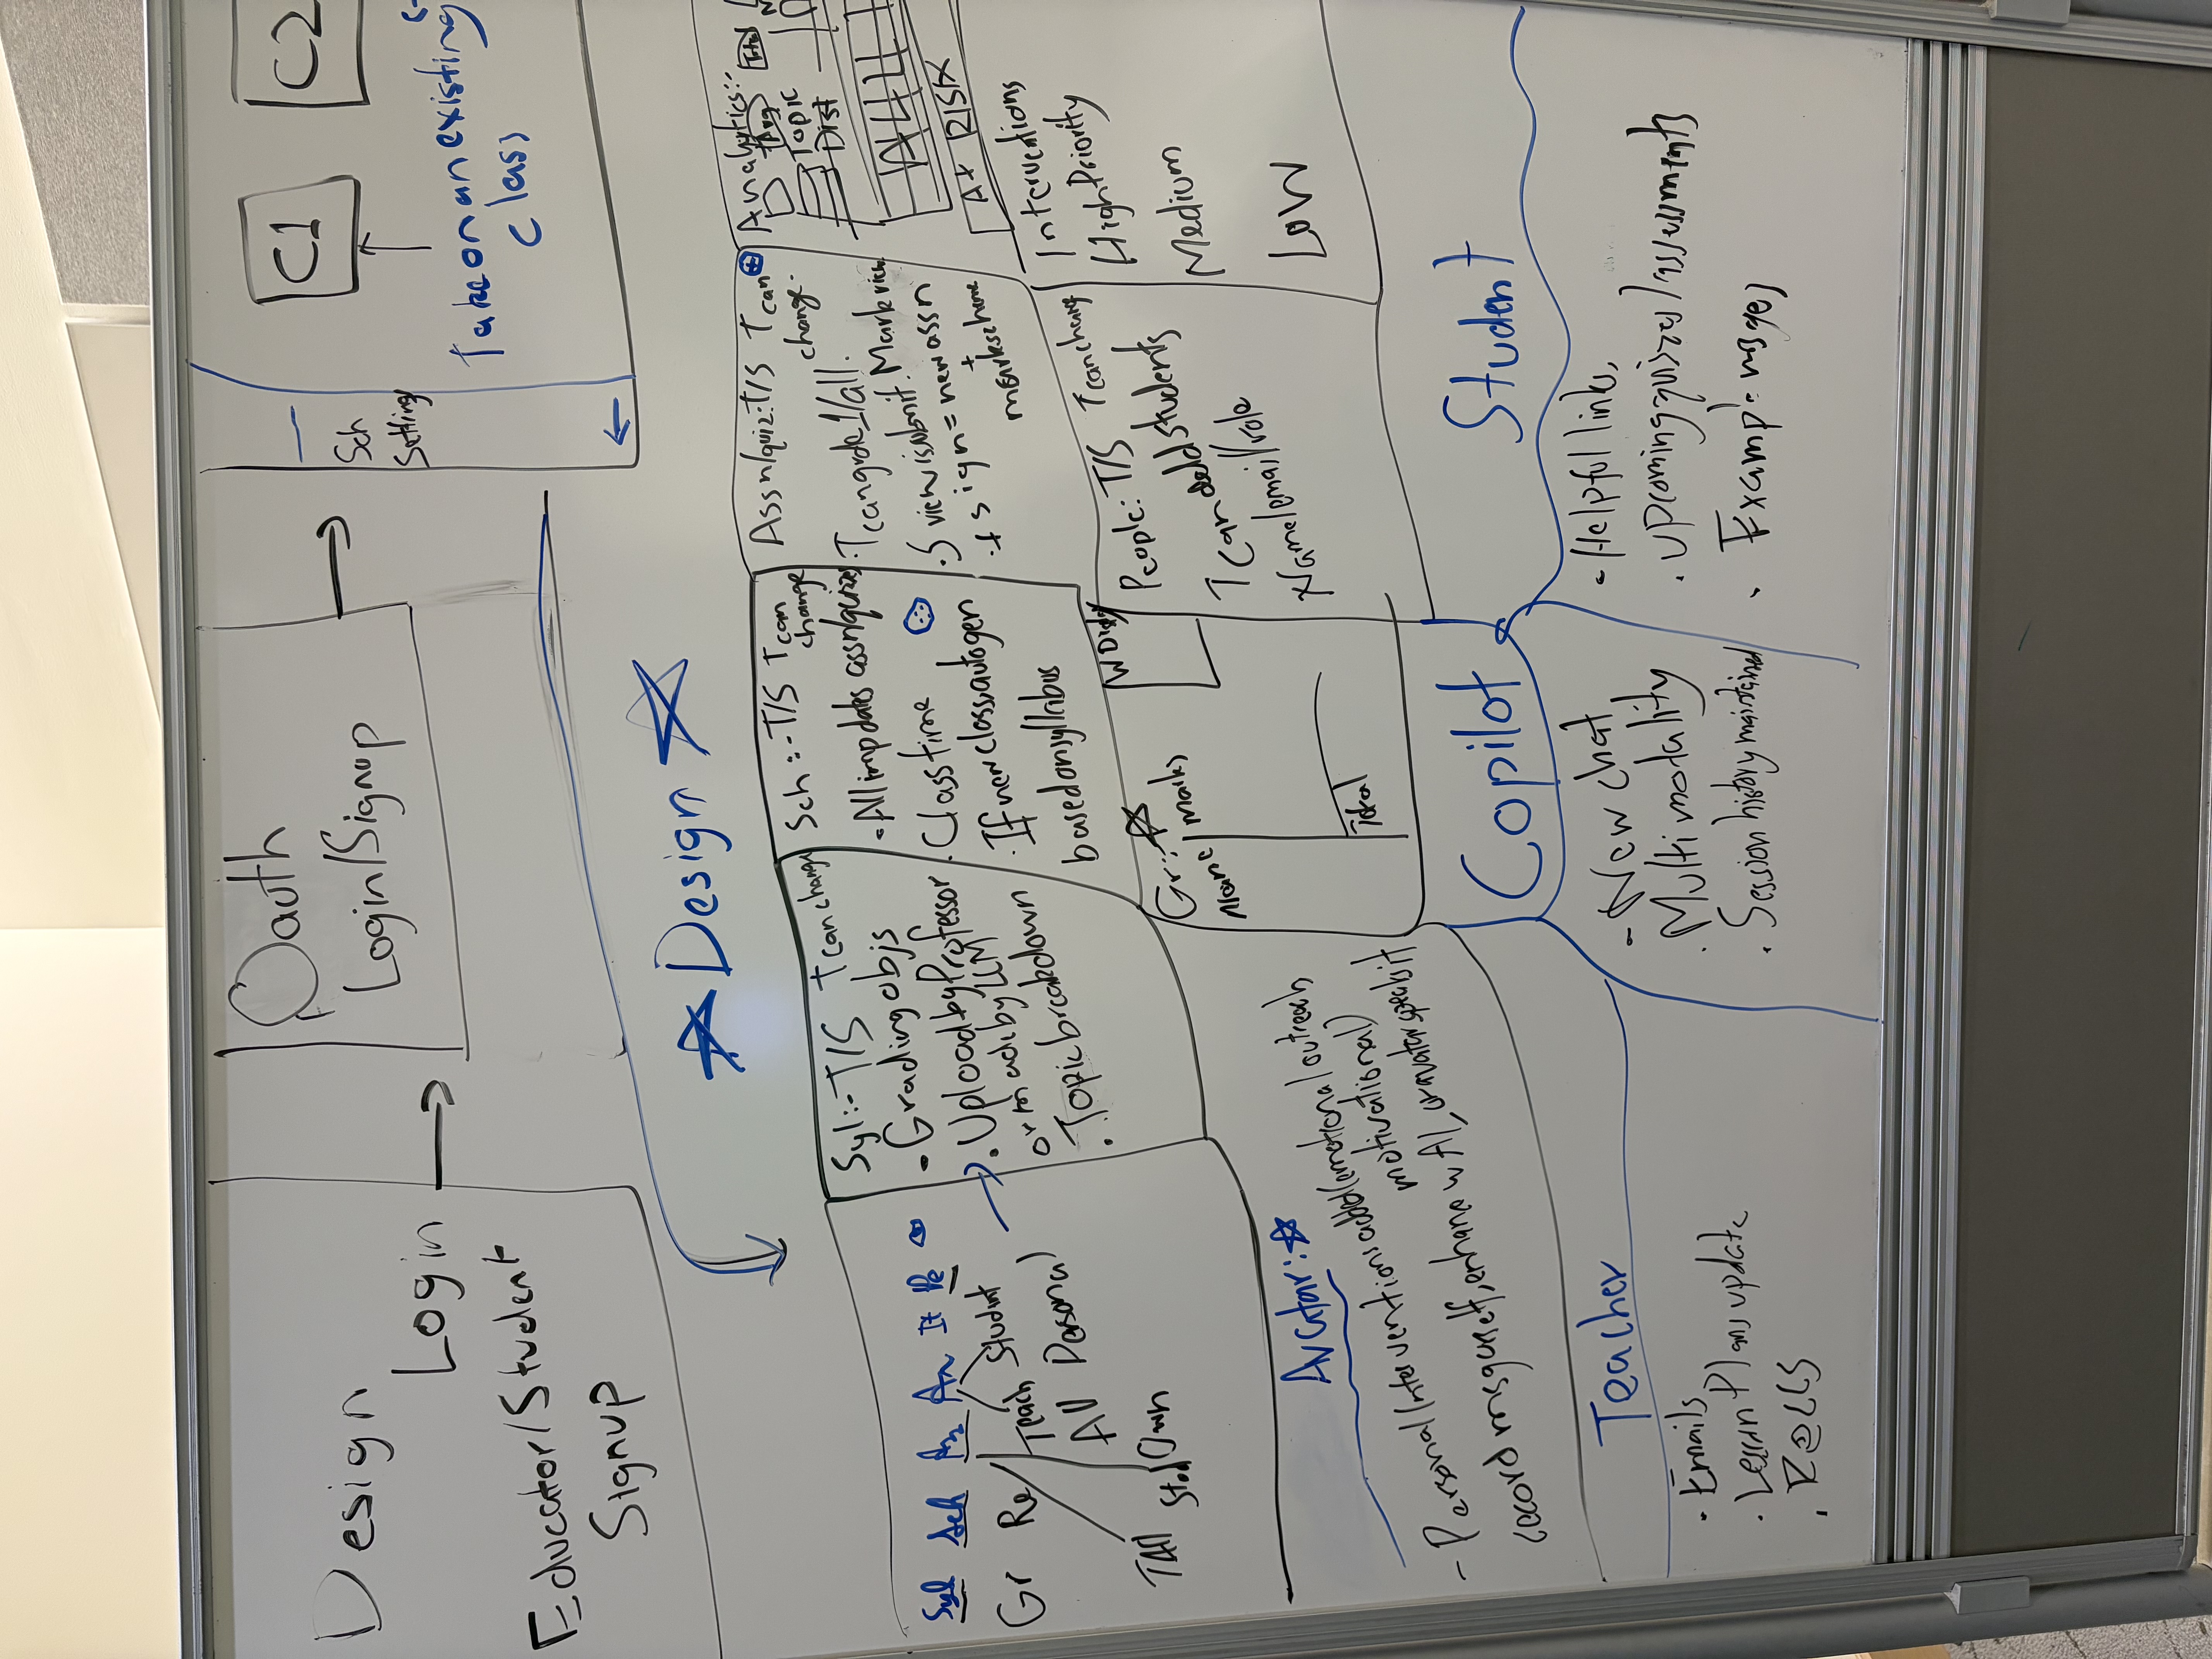 Design
Login
Educator/Student
Signup
Oauth
Login/Signup
Sch
Setting
C1
C2
Take on an existing
class
Design
Syl Sch An It Pe
Gr Re Teach Student
AU Personal
TAll Stud Own
Syl:-T/S T can change
• Grading objs
• Upload by Professor
or made by LLM
• Topic breakdown
Sch:-T/S T can
change
• All imp dates assn/quizzes
• Class time
• If new class autogen
based on syllabus
Assn/quiz:T/S T can
change.
• T can grade 1/all.
• S view is submit.
+ S sign = new assn
+
markscheme
Analytics:
Topic
Dist
At RISK
Interventions
High Priority
Medium
Low
People: T/S T can change
T can add students
Name/email/role
Gr:
Name/marks
Total
Avatar:
- Personal/Interventions added(emotional outreach
motivational)
record msg urself, enhance w AI,
Copilot
Teacher
• Emails
• Learn Plans update
- New chat
• Multimodality
• Session history maintained
Student
• Helpful links,
• upcoming quizzes/assessments
• Example msges